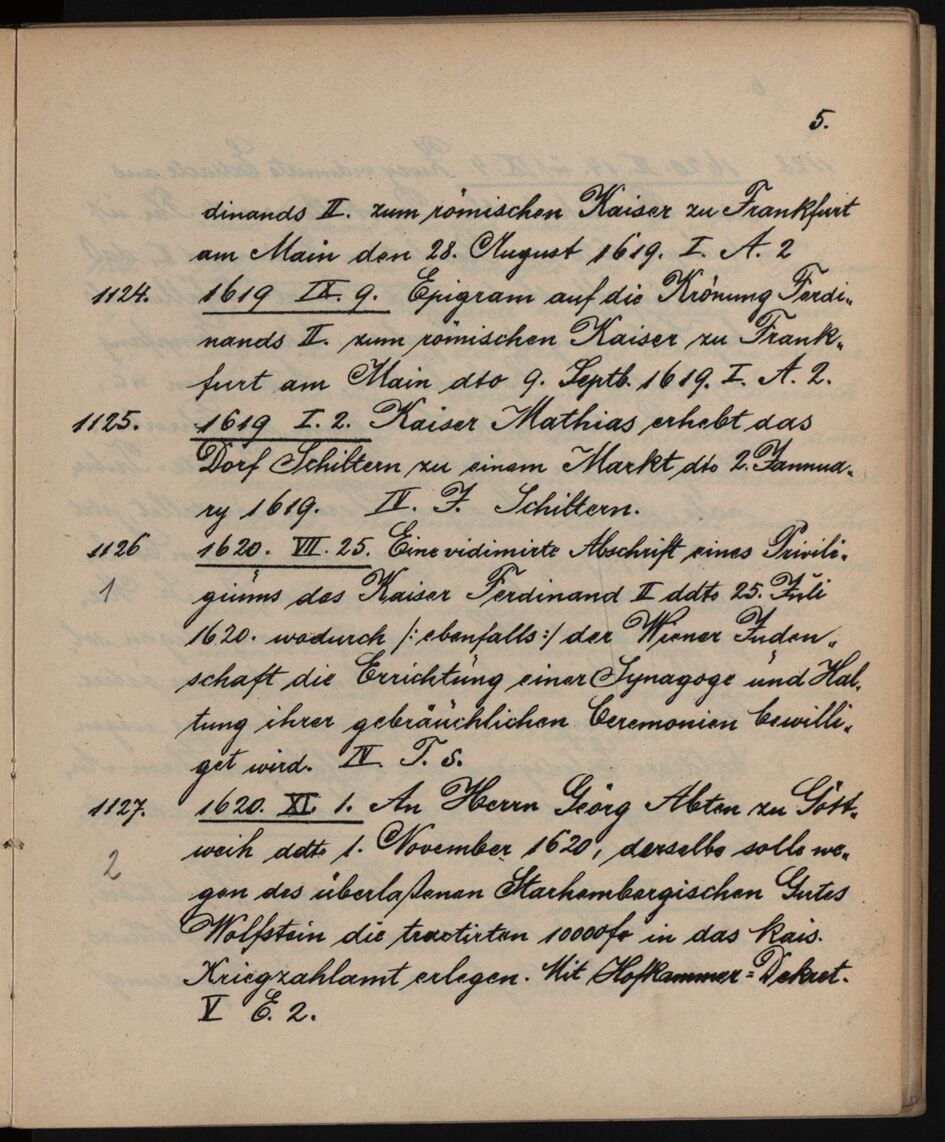 5.
dinands II. zum römischen Kaiser zu Frankfurt
am Main den 28. August 1619. I. A. 2
1124. 1619 IX. 9. Epigram auf die Krönung Ferdi„
nands II. zum römischen Kaiser zu Frank„
furt am Main dto 9. Septb. 1619. I. A. 2.
1125. 1619 I. 2. Kaiser Mathias erhebt das
Dorf Schiltern zu einem Markt dto 2. Jannua„
ry 1619. IV. F. Schiltern.
1126 1620. VII. 25. Eine vidimirte Abschrift eines Privile„
1 giums des Kaiser Ferdinand II ddto 25. Juli
1620. wodurch /: ebenfalls :/ der Wiener Juden„
schaft die Errichtung einer Synagoge und Hal„
tung ihrer gebräuchlichen Ceremonien bewilli„
get wird. IV. T. S.
1127. 1620. XI. 1. An Herrn Georg Abten zu Gött„
weih ddto 1. November 1620, derselbe solle we„
2
gen des überlaßenen Starhembergischen Gutes
Wolfstein die tractirten 10000 fo in das kais.
Kriegzahlamt erlegen. Mit Hofkammer=Dekret.
V E. 2.